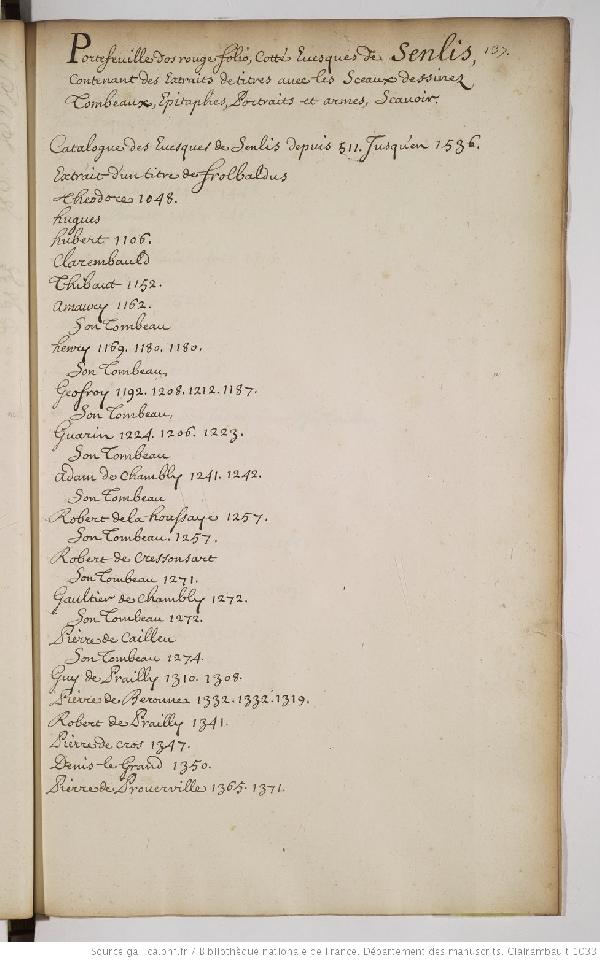 Portefeuille dos rouge folio, Cotté Euesques de Senlis, 137.
Contenant des Extraits de titres avec les Sceaux dessinez
Tombeaux, Epitaphes, Portraits et armes, Scauoir.
Catalogue des Euesques de Senlis depuis 511. Jusqu'en 1536.
Extrait d'un titre de frolbaldus
Theodore 1048.
hugues
hubert 1106.
Clarembauld
Thibaut 1152.
Amaury 1162.
Son Tombeau
henry 1169. 1180. 1180.
Son Tombeau,
Geofroy 1192. 1208. 1212. 1187.
Son Tombeau,
Guarin 1224. 1206. 1223.
Son Tombeau
Adam de Chambly 1241. 1242.
Son Tombeau
Robert de la houssaye 1257.
Son Tombeau. 1257.
Robert de Cressonsart
Son Tombeau 1271.
Gaultier de Chambly 1272.
Son Tombeau 1272.
Pierre de Cailleu
Son Tombeau 1274.
Guy de Prailly 1310. 1308.
Pierre de Beronnes 1332. 1332. 1319.
Robert de Prailly 1341.
Pierre de cros 1347.
Denis le Grand 1350.
Pierre de Prouerville 1365. 1371.
Source gallica.bnf.fr / Bibliothèque nationale de France. Département des manuscrits. Clairambault 1033